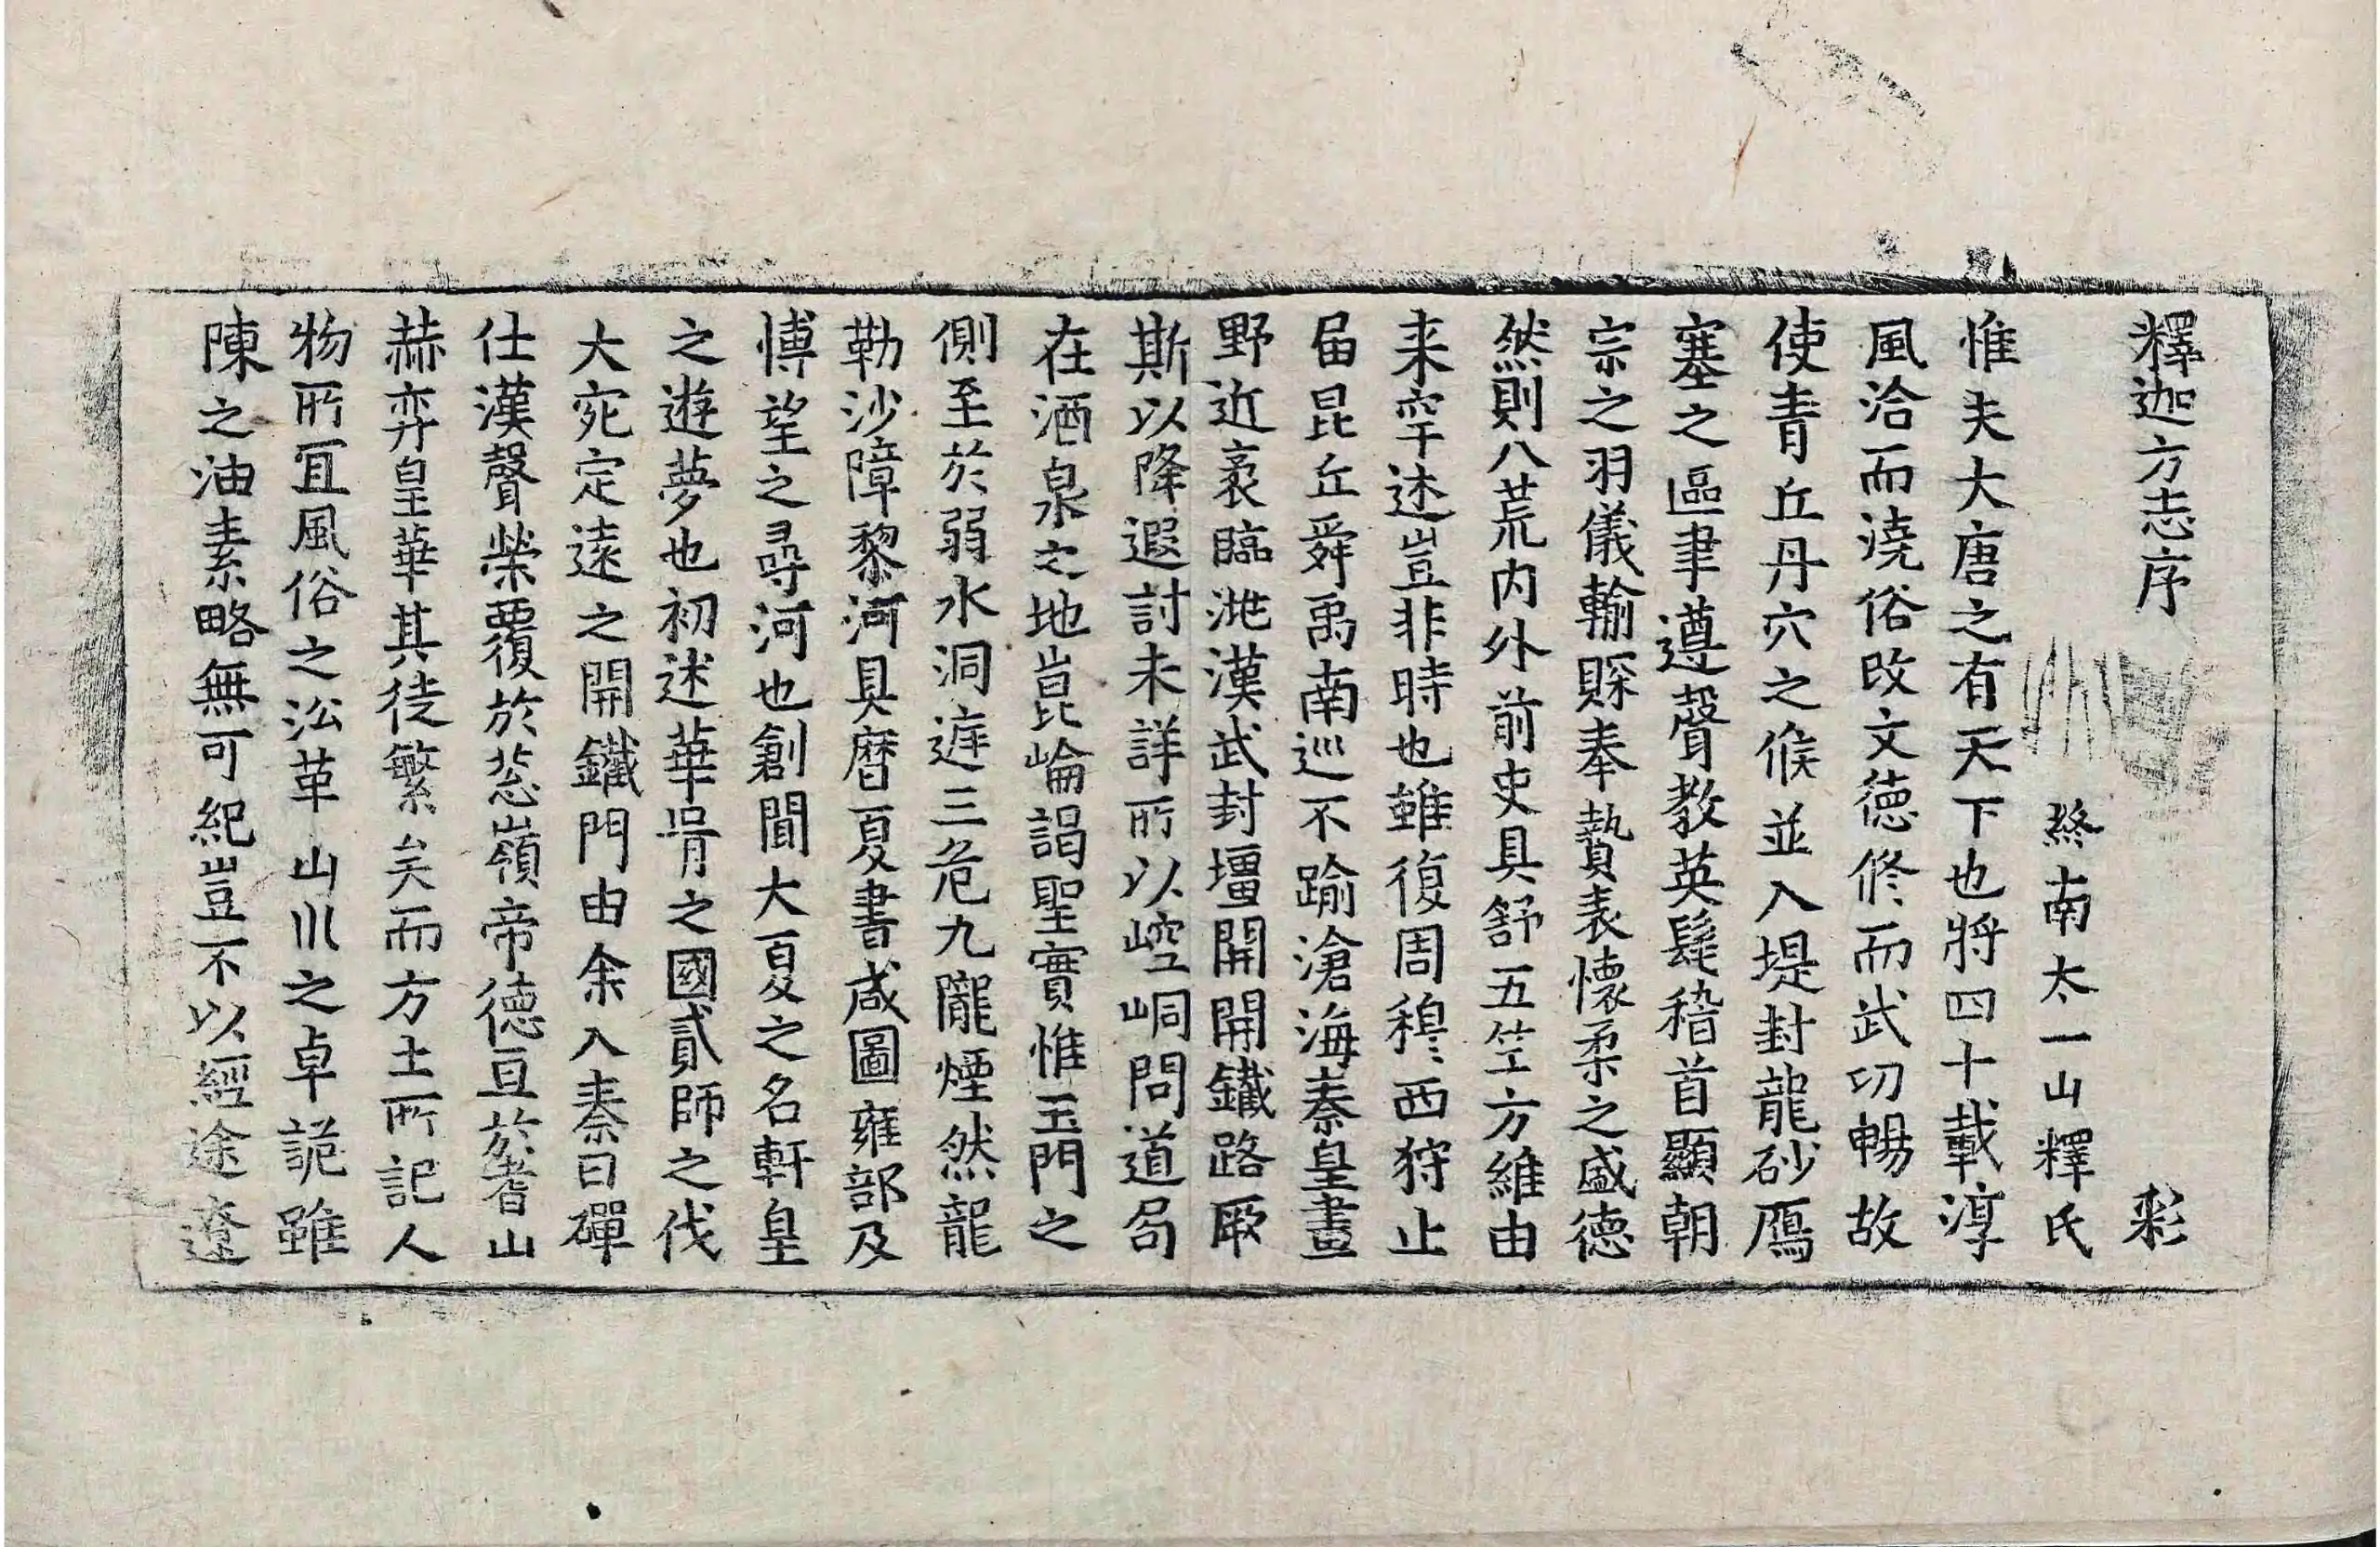 釋迦方志序 彩
終南太一山釋氏
惟夫大唐之有天下也將四十載淳
風洽而澆俗改文德修而武功暢故
使青丘丹穴之候並入堤封龍砂鴈
塞之區聿遵聲教英髦稽首顯朝
宗之羽儀輸賝奉贄表懷柔之盛德
然則八荒内外前史具舒五竺方維由
来罕述豈非時也雖復周穆西狩止
届昆丘舜禹南巡不踰滄海秦皇畫
野近袤臨洮漢武封壃開開鐵路厥
斯以降遐討未詳所以崆峒問道局
在酒泉之地崑崘謁聖實惟玉門之
側至於弱水洞遮三危九隴煙然龍
勒沙障黎河具曆夏書咸圖雍部及
博望之尋河也創聞大夏之名軒皇
之遊夢也初述華胥之國貳師之伐
大宛定遠之開鐵門由余入秦日磾
仕漢聲榮覆於葱嶺帝德亘於耆山
赫弈皇華其徒繁矣而方土所記人
物所冝風俗之㳂革山川之卓詭雖
陳之油素略無可紀豈不以經途遼